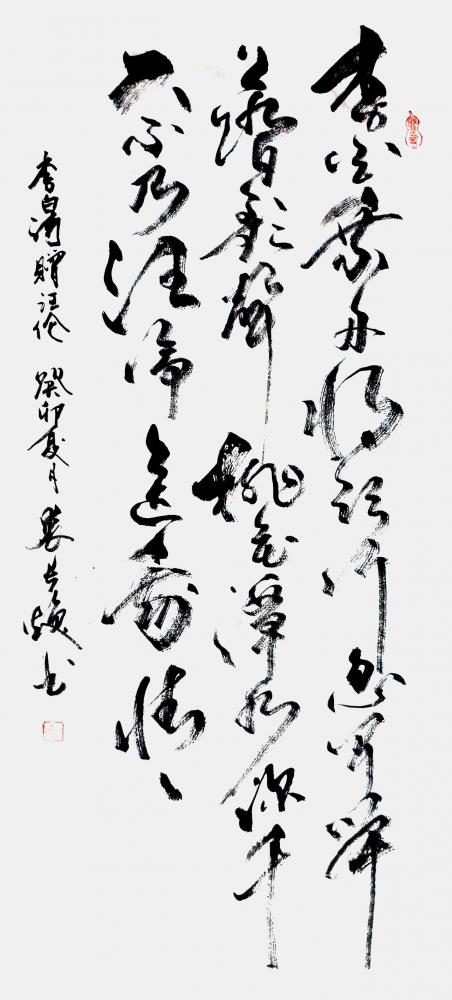 李白乘舟将欲行忽闻岸
上踏歌聲桃花潭水深千
尺不及汪倫送我情
李白詩贈汪伦 癸卯夏月 书